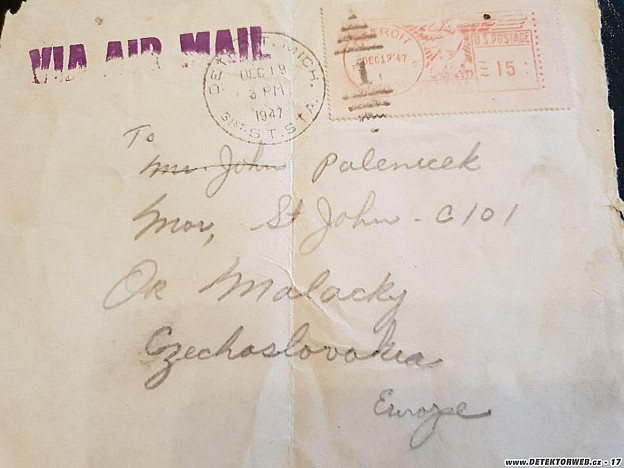 VIA AIR MAIL
DETROIT, MICH.
DEC 19
3 PM
1947
31st. ST. STA.
DETROIT
DEC 19 '47
U.S. POSTAGE
15
1
To
Mr. John Polenicek
Mor, St John - C 101
Ok Malacky
Czechoslovakia
Europe
www.DETEKTORWEB.cz - 17